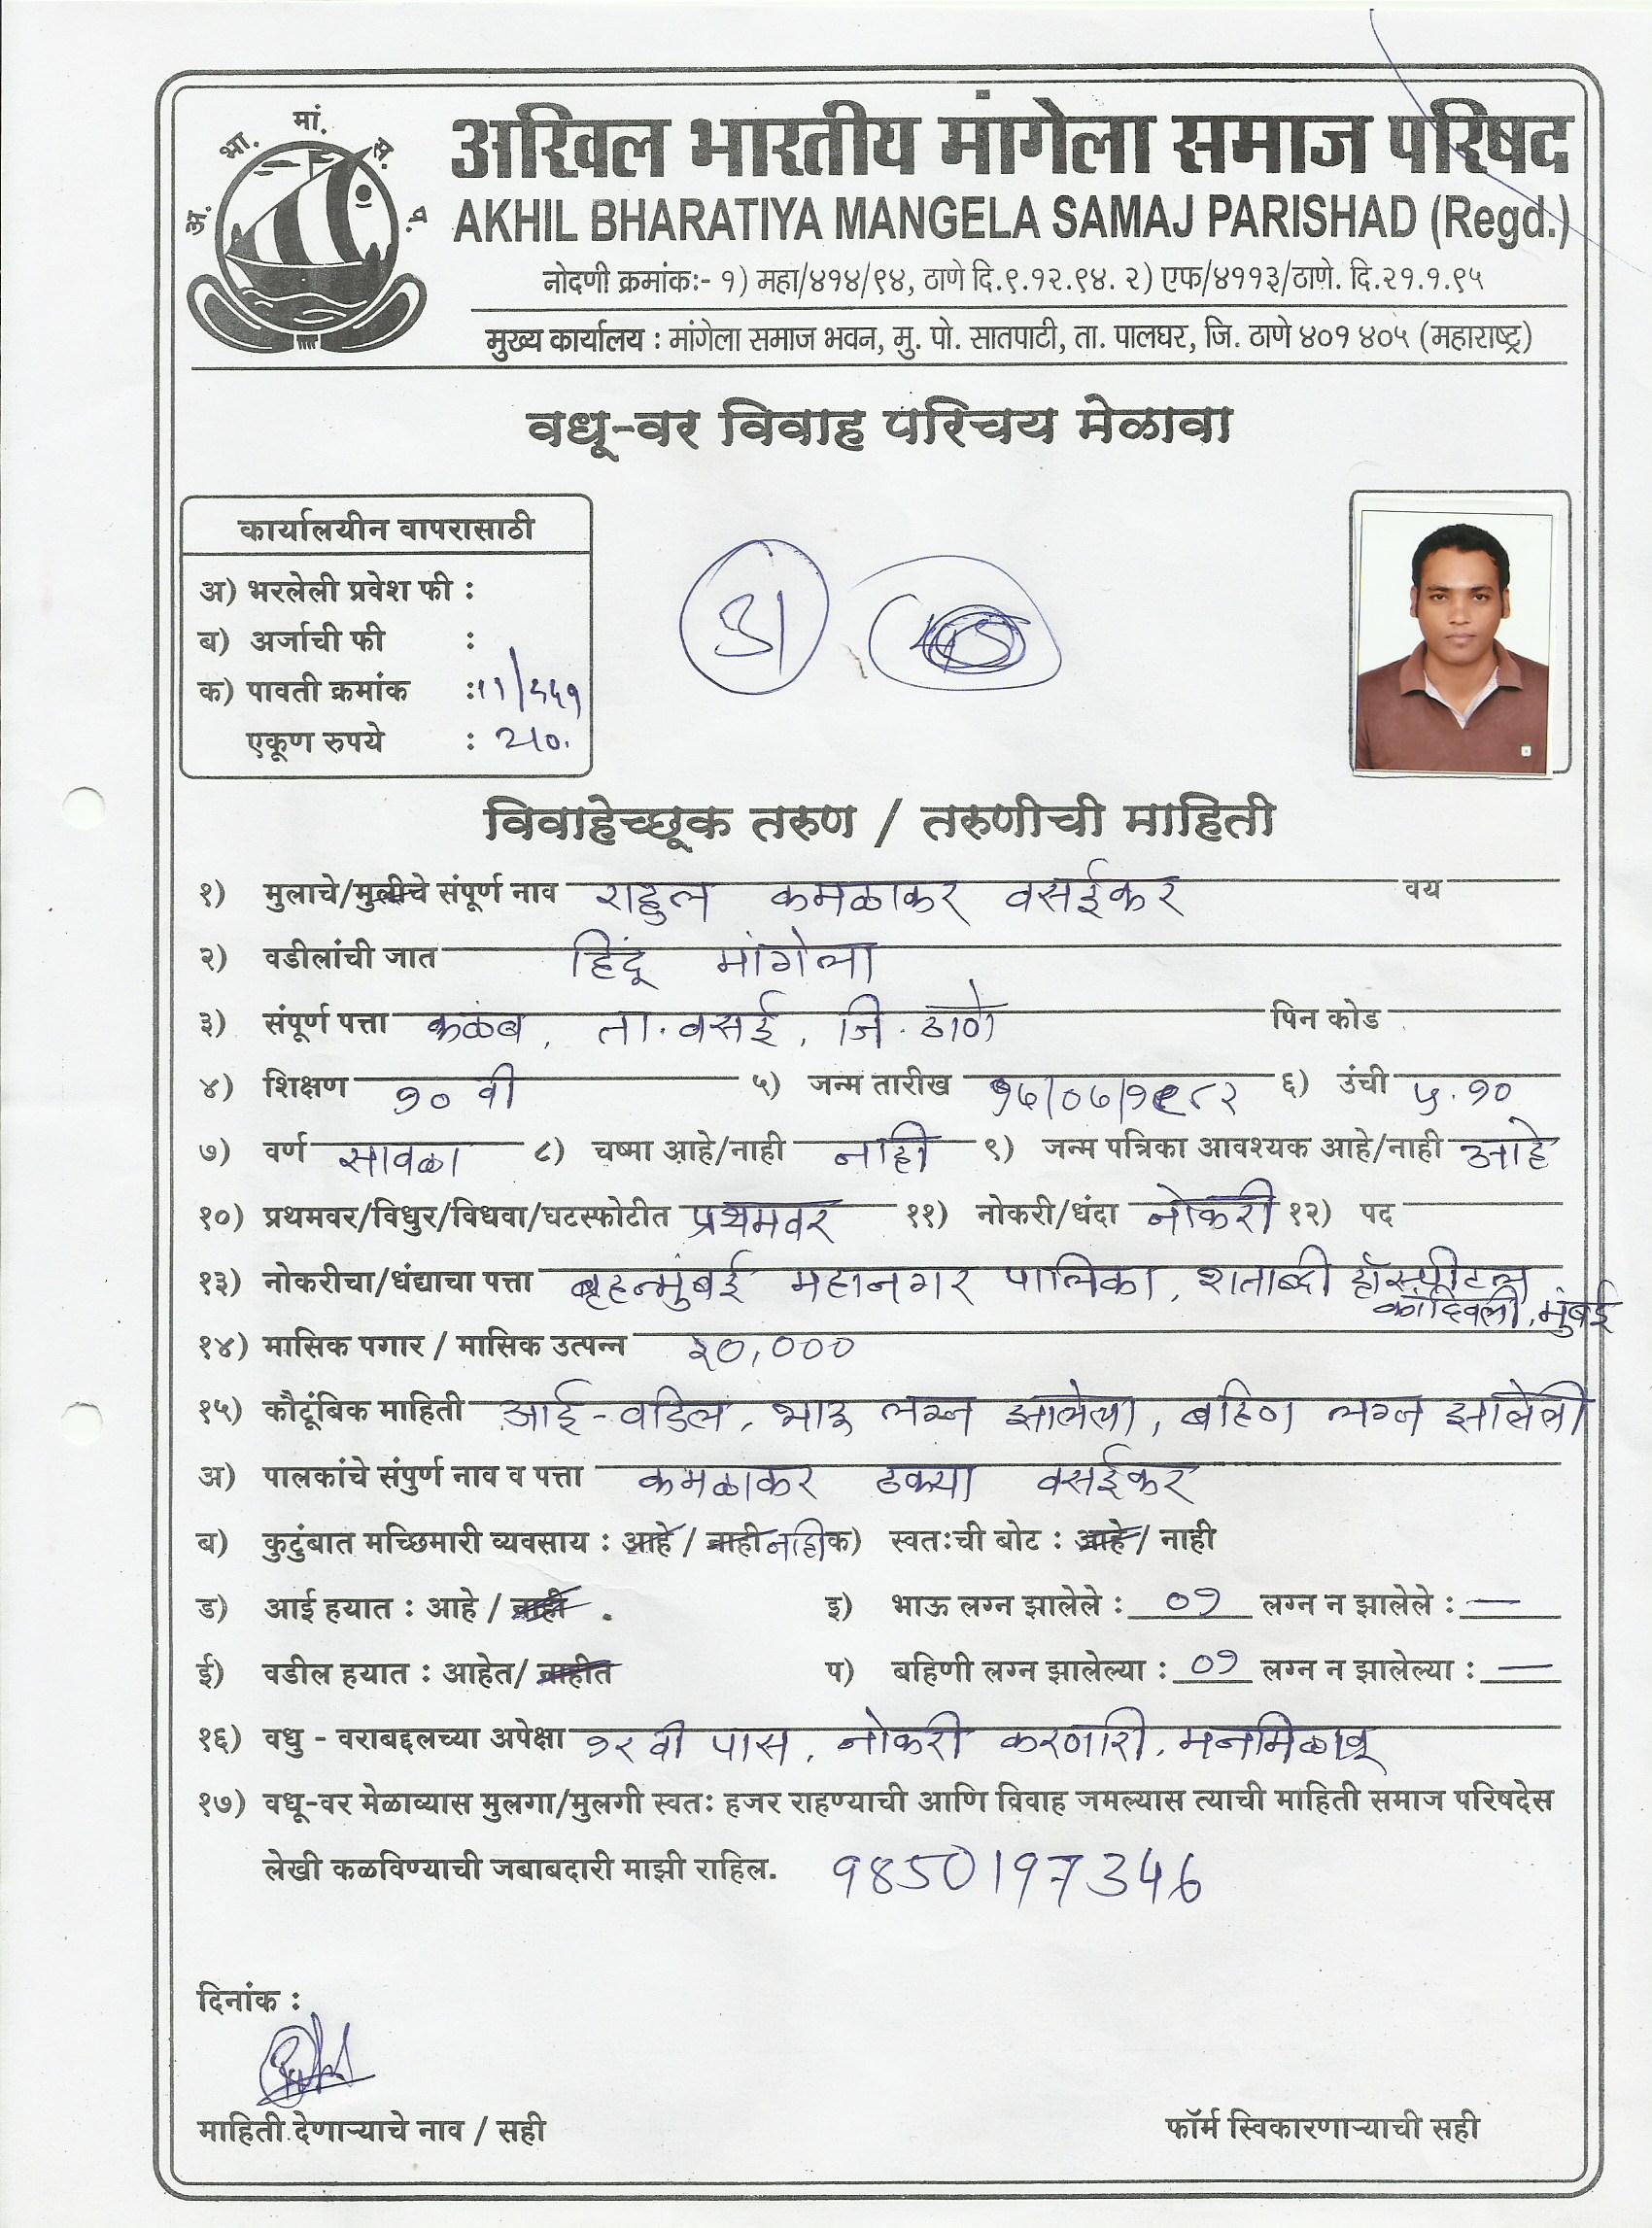 अ. भा. मां. स. प.
अखिल भारतीय मांगेला समाज परिषद
AKHIL BHARATIYA MANGELA SAMAJ PARISHAD (Regd.)
नोदणी क्रमांकः- १) महा/४१४/९४, ठाणे दि.९.१२.९४. २) एफ/४११३/ठाणे. दि.२१.१.९५
मुख्य कार्यालय : मांगेला समाज भवन, मु. पो. सातपाटी, ता. पालघर, जि. ठाणे ४०१ ४०५ (महाराष्ट्र)
वधू-वर विवाह परिचय मेळावा
कार्यालयीन वापरासाठी
अ) भरलेली प्रवेश फी :
ब) अर्जाची फी :
क) पावती क्रमांक :
एकूण रुपये :
विवाहेच्छूक तरुण / तरुणीची माहिती
१) मुलाचे/मुलीचे संपूर्ण नाव राहुल कमळाकर वसईकर वय
२) वडीलांची जात हिंदू मांगेला
३) संपूर्ण पत्ता कळंब, ता. वसई, जि. ठाणे पिन कोड
४) शिक्षण १० वी ५) जन्म तारीख १५/०७/१९८२ ६) उंची ५.१०
७) वर्ण सावळा ८) चष्मा आहे/नाही नाही ९) जन्म पत्रिका आवश्यक आहे/नाही आहे
१०) प्रथमवर/विधुर/विधवा/घटस्फोटीत प्रथमवर ११) नोकरी/धंदा नोकरी १२) पद
१३) नोकरीचा/धंद्याचा पत्ता बृहन्मुंबई महानगर पालिका, शताब्दी हॉस्पीटल
कांदिवली, मुंबई
१४) मासिक पगार / मासिक उत्पन्न २०,०००
१५) कौटूंबिक माहिती आई-वडिल, भाऊ लग्न झालेला, बहिण लग्न झालेली
अ) पालकांचे संपुर्ण नाव व पत्ता कमळाकर ढक्या वसईकर
ब) कुटुंबात मच्छिमारी व्यवसाय : आहे / नाही नाही क) स्वतःची बोट : आहे / नाही
ड) आई हयात : आहे / नाही . इ) भाऊ लग्न झालेले : ०१ लग्न न झालेले : —
ई) वडील हयात : आहेत/ नाहीत प) बहिणी लग्न झालेल्या : ०१ लग्न न झालेल्या : —
१६) वधु - वराबद्दलच्या अपेक्षा १२ वी पास, नोकरी करणारी, मनमिळावू
१७) वधू-वर मेळाव्यास मुलगा/मुलगी स्वतः हजर राहण्याची आणि विवाह जमल्यास त्याची माहिती समाज परिषदेस
लेखी कळविण्याची जबाबदारी माझी राहिल. 9850197346
दिनांक :
माहिती देणाऱ्याचे नाव / सही फॉर्म स्विकारणाऱ्याची सही